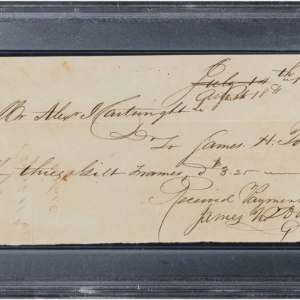 July 14th
August 18th
Mr Alex J Cartwright
Dr To James H.
three Gilt Frames, $ 3.25
Received Payment
James H